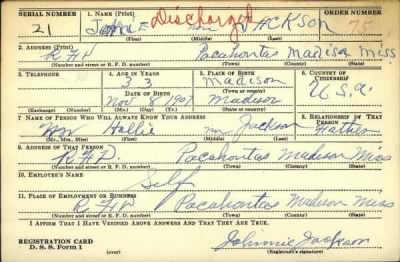 SERIAL NUMBER 1. NAME (Print) ORDER NUMBER
Discharged
21 John E JACKSON 75
(First) (Middle) (Last)
2. ADDRESS (Print)
R.F.D. Pocahontas Madison Miss.
(Number and street or R. F. D. number) (Town) (County) (State)
3. TELEPHONE 4. AGE IN YEARS 5. PLACE OF BIRTH 6. COUNTRY OF CITIZENSHIP
33 Madison
(Town or county)
Nov 1907 Madison U.S.A.
(Exchange) (Number) (Mo.) (Day) (Yr.) (State or country)
7. NAME OF PERSON WHO WILL ALWAYS KNOW YOUR ADDRESS 8. RELATIONSHIP OF THAT PERSON
Mr Hollie Jackson Father
(Mr., Mrs., Miss) (First) (Middle) (Last)
9. ADDRESS OF THAT PERSON
R.F.D. Pocahontas Madison Miss
(Number and street or R. F. D. number) (Town) (County) (State)
10. EMPLOYER'S NAME
Self
11. PLACE OF EMPLOYMENT OR BUSINESS
R.F.D. Pocahontas Madison Miss
(Number and street or R. F. D. number) (Town) (County) (State)
I AFFIRM THAT I HAVE VERIFIED ABOVE ANSWERS AND THAT THEY ARE TRUE.
REGISTRATION CARD
D. S. S. Form 1 (over) Johnnie Jackson
(Registrant's signature)